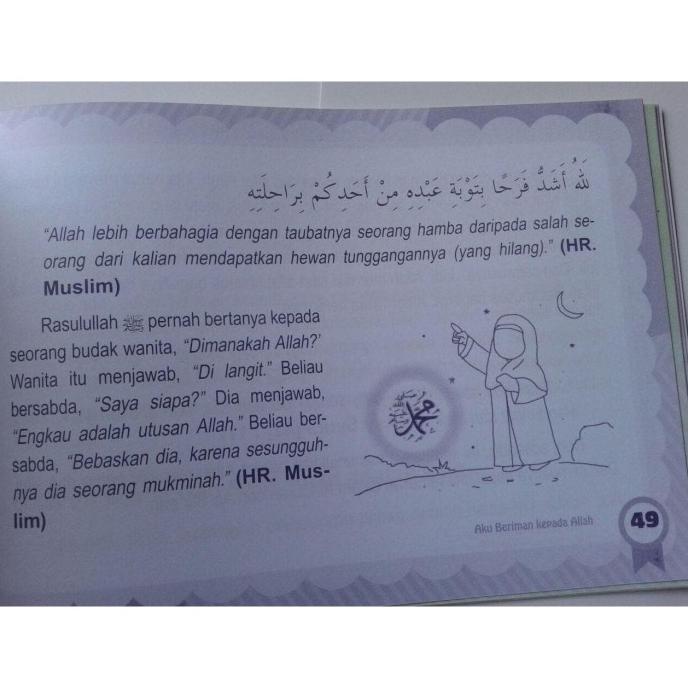 لَلَّهُ أَشَدُّ فَرَحًا بِتَوْبَةِ عَبْدِهِ مِنْ أَحَدِكُمْ بِرَاحِلَتِهِ
“Allah lebih berbahagia dengan taubatnya seorang hamba daripada salah se-
orang dari kalian mendapatkan hewan tunggangannya (yang hilang).” (HR.
Muslim)
Rasulullah ﷺ pernah bertanya kepada
seorang budak wanita, “Dimanakah Allah?’
Wanita itu menjawab, “Di langit.” Beliau
bersabda, “Saya siapa?” Dia menjawab,
“Engkau adalah utusan Allah.” Beliau ber-
sabda, “Bebaskan dia, karena sesungguh-
nya dia seorang mukminah.” (HR. Mus-
lim)
محمد ﷺ
Aku Beriman kepada Allah
49